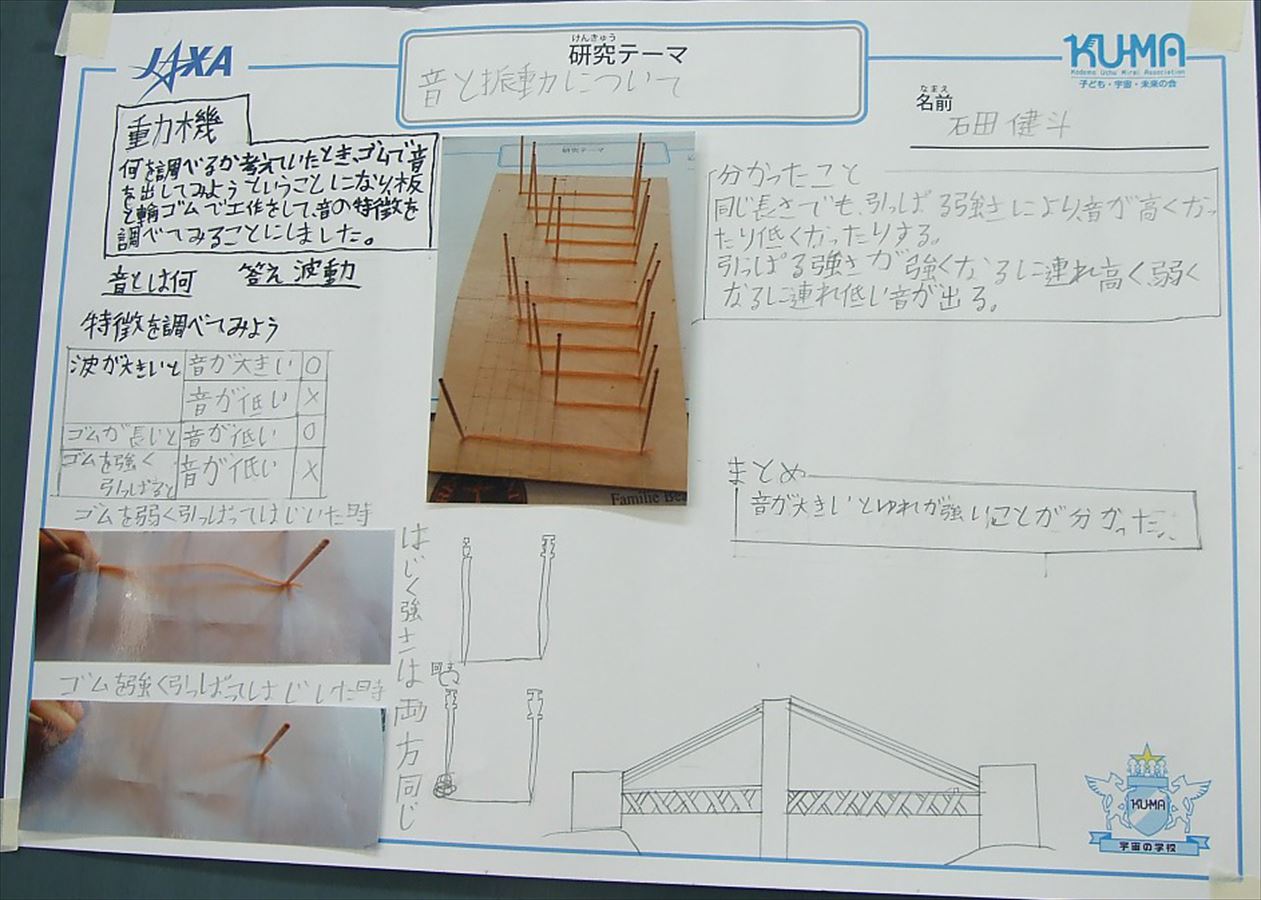 JAXA
けんきゅう
研究テーマ
音と振動について
KU-MA
Kodomo Uchu Mirai Association
子ども・宇宙・未来の会
なまえ
名前
石田健斗
動力機
何を調べるか考えていたとき、ゴムで音
を出してみようということになり、板
と輪ゴムで工作をして、音の特徴を
調べてみることにしました。
音とは何 答え 波動
特徴を調べてみよう
波が大きいと 音が大きい ○
音が低い ×
ゴムが長いと 音が低い ○
ゴムを強く
引っぱると 音が低い ×
ゴムを弱く引っぱってはじいた時
ゴムを強く引っぱってはじいた時
はじく強さは両方同じ
回す
研究テーマ
Familie Be
分かったこと
同じ長さでも、引っぱる強さにより、音が高くなっ
たり低くなったりする。
引っぱる強さが強くなるに連れ高く、弱く
なるに連れ低い音が出る。
まとめ
音が大きいとゆれが強いことが分かった。
KU-MA
宇宙の学校